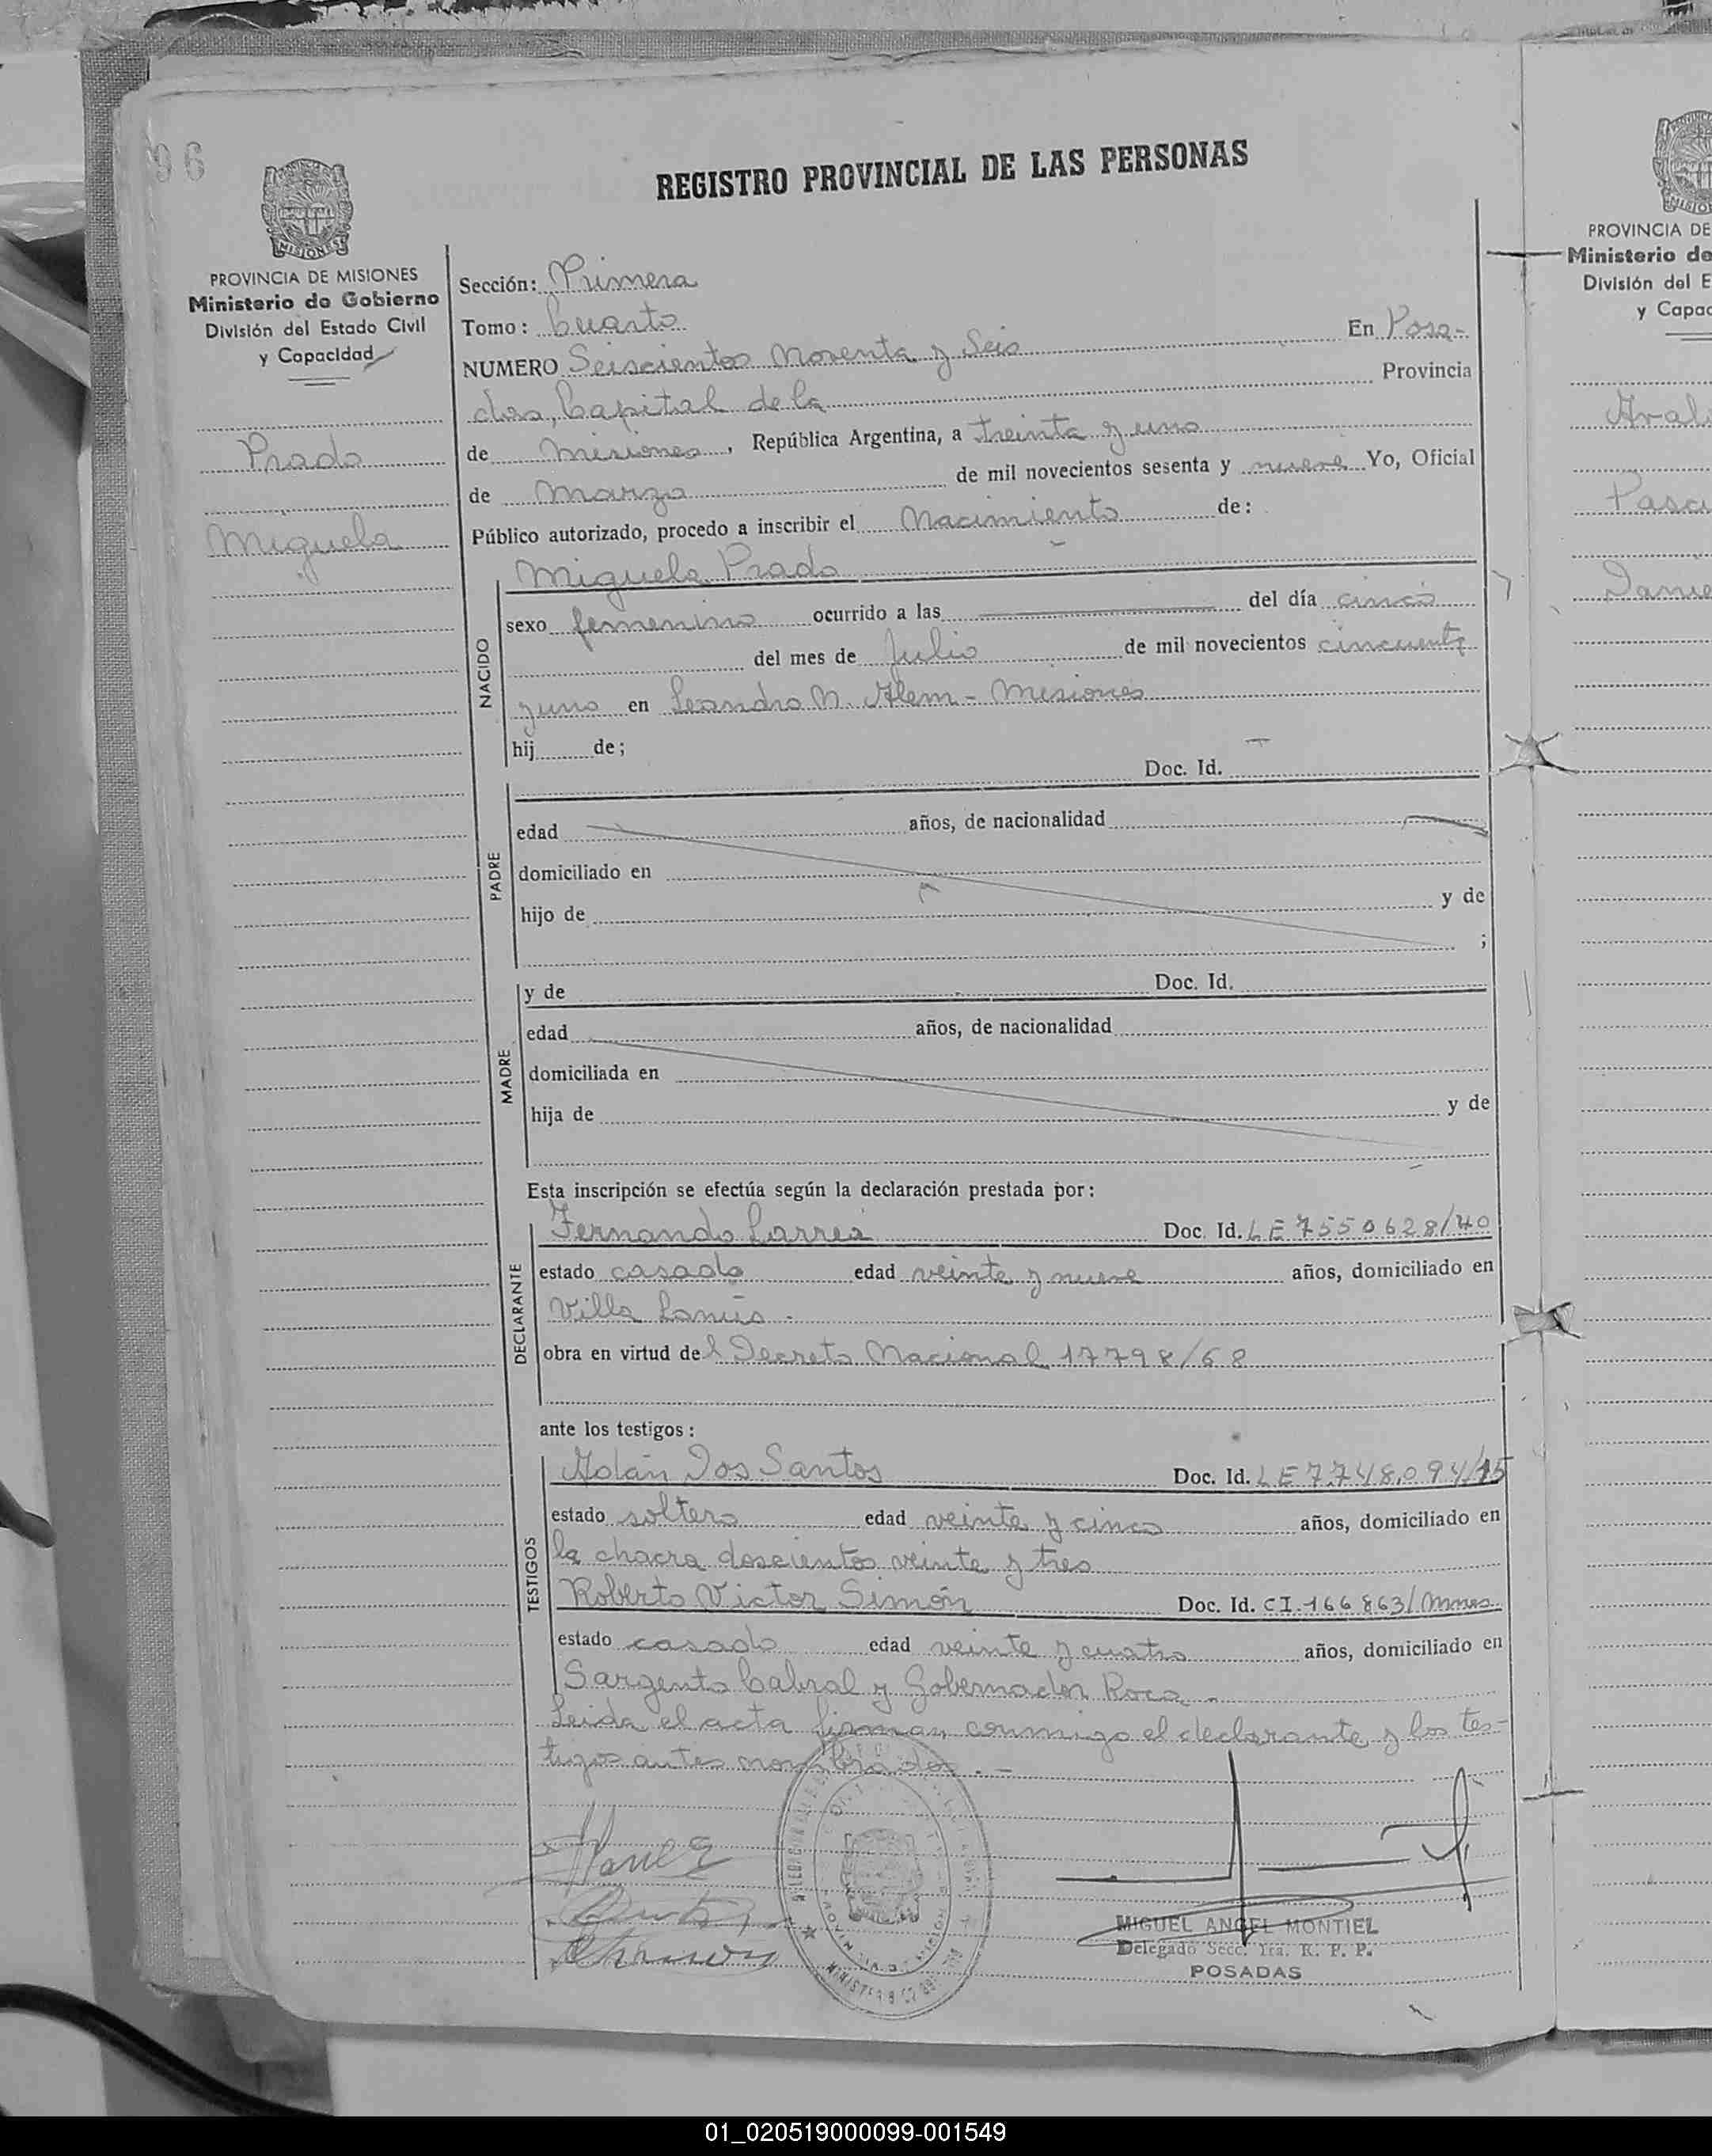 96
REGISTRO PROVINCIAL DE LAS PERSONAS
MISIONES
PROVINCIA DE MISIONES
Ministerio de Gobierno
División del Estado Civil
y Capacidad
Prado
Miguela
Sección: Primera
Tomo: Cuarto
NUMERO Seiscientos Noventa y Seis En Posa-
das, Capital de la Provincia
de Misiones, República Argentina, a treinta y uno
de Marzo de mil novecientos sesenta y nueve Yo, Oficial
Público autorizado, procedo a inscribir el Nacimiento de:
NACIDO
Miguela Prado
sexo femenino ocurrido a las del día cinco
del mes de Julio de mil novecientos cincuenta
y uno en Leandro N. Alem - Misiones
hij de;
PADRE
Doc. Id.
edad años, de nacionalidad
domiciliado en
hijo de y de
;
MADRE
y de Doc. Id.
edad años, de nacionalidad
domiciliada en
hija de y de
Esta inscripción se efectúa según la declaración prestada por:
DECLARANTE
Fernando Larrea Doc. Id. LE 7550628/40
estado casado edad veinte y nueve años, domiciliado en
Villa Lanús.
obra en virtud del Decreto Nacional 17798/68
ante los testigos:
TESTIGOS
Dos Santos Doc. Id. LE 7.748.094/15
estado soltero edad veinte y cinco años, domiciliado en
la chacra doscientos veinte y tres
Roberto Victor Simón Doc. Id. CI. 166863/Mnes
estado casado edad veinte y cuatro años, domiciliado en
Sargento Cabral y Gobernador Roca.
Leida el acta firman conmigo el declarante y los tes-
tigos antes nombrados.-
MIGUEL ANGEL MONTIEL
Delegado Secc. 1ra. R. P. P.
POSADAS
PROVINCIA DE
Ministerio de
División del E
y Capac
01_020519000099-001549